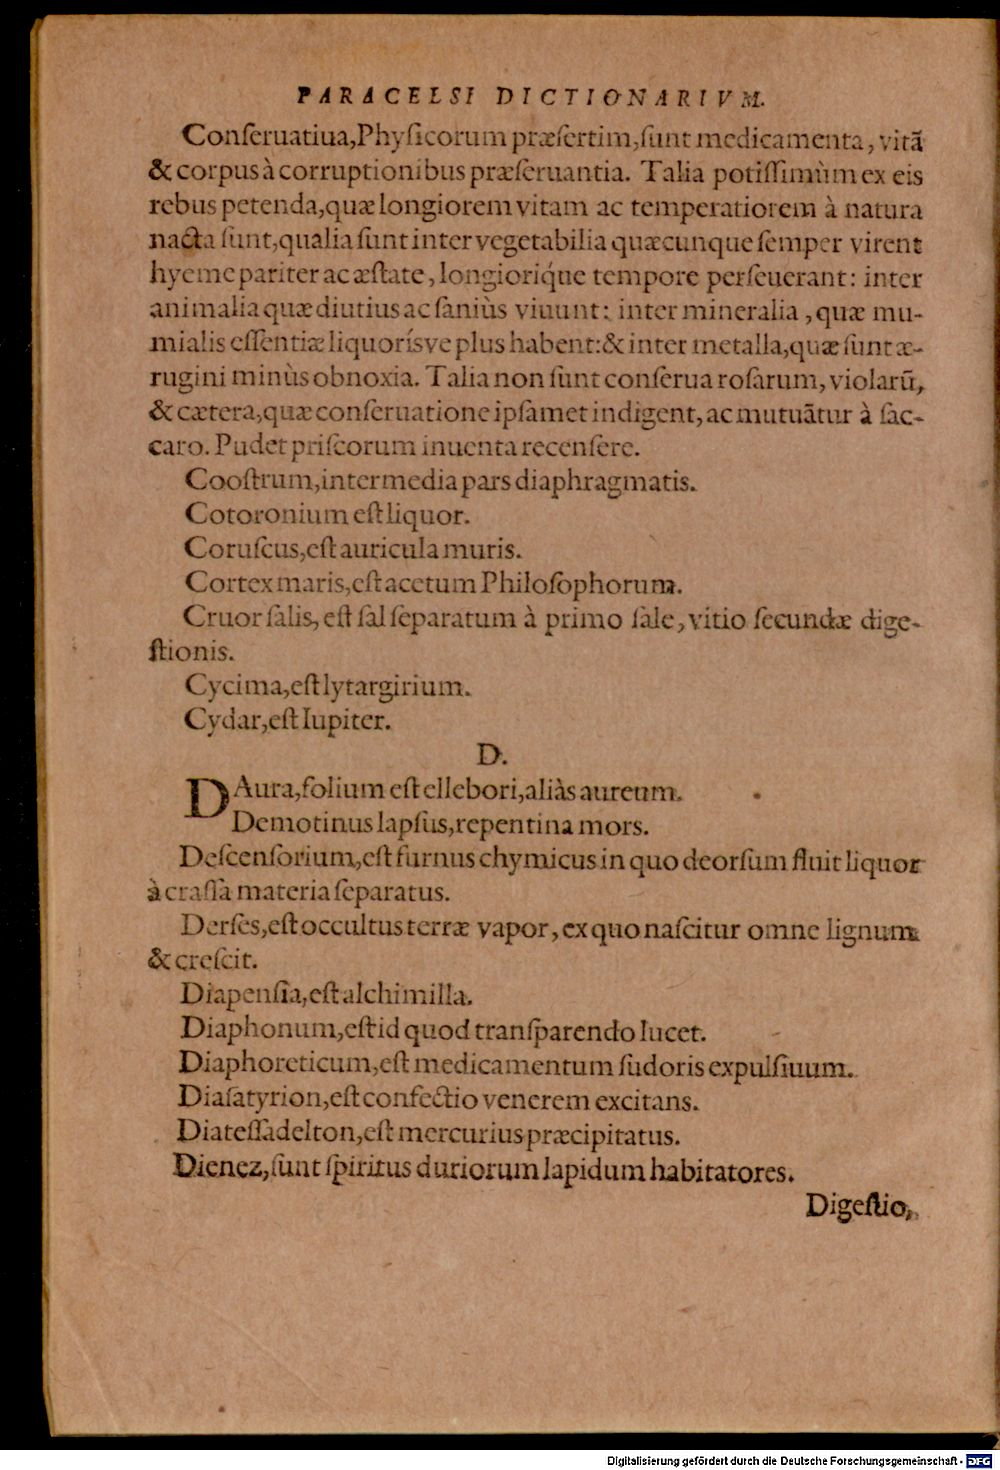 PARACELSI DICTIONARIVM.
Conſeruatiua,Phyſicorum præſertim,ſunt medicamenta, vitã
& corpus à corruptionibus præſeruantia. Talia potiſſimùm ex eis
rebus petenda,quæ longiorem vitam ac temperatiorem à natura
nacta ſunt,qualia ſunt inter vegetabilia quæcunque ſemper virent
hyeme pariter ac æſtate, longioriq́ue tempore perſeuerant: inter
animalia quæ diutius ac ſaniùs viuunt: inter mineralia, quæ mu-
mialis eſſentiæ liquoríſve plus habent:& inter metalla,quæ ſunt æ-
rugini minùs obnoxia. Talia non ſunt conſerua roſarum, violarũ,
& cætera,quæ conſeruatione ipſamet indigent, ac mutuãtur à ſac-
caro. Pudet priſcorum inuenta recenſere.
Cooſtrum,intermedia pars diaphragmatis.
Cotoronium eſt liquor.
Coruſcus,eſt auricula muris.
Cortex maris,eſt acetum Philoſophorum.
Cruor ſalis, eſt ſal ſeparatum à primo ſale, vitio ſecundæ dige-
ſtionis.
Cycima,eſt lytargirium.
Cydar,eſt Iupiter.
D.
DAura,folium eſt ellebori,aliàs aureum.
Demotinus lapſus,repentina mors.
Deſcenſorium,eſt furnus chymicus in quo deorſum fluit liquor
à craſſà materia ſeparatus.
Derſes,eſt occultus terræ vapor, ex quo naſcitur omne lignum
& creſcit.
Diapenſia,eſt alchimilla.
Diaphonum,eſt id quod tranſparendo lucet.
Diaphoreticum,eſt medicamentum ſudoris expulſiuum.
Diaſatyrion,eſt confectio venerem excitans.
Diateſſadelton,eſt mercurius præcipitatus.
Dienez,ſunt ſpiritus duriorum lapidum habitatores.
Digeſtio,
Digitalisierung gefördert durch die Deutsche Forschungsgemeinschaft - DFG